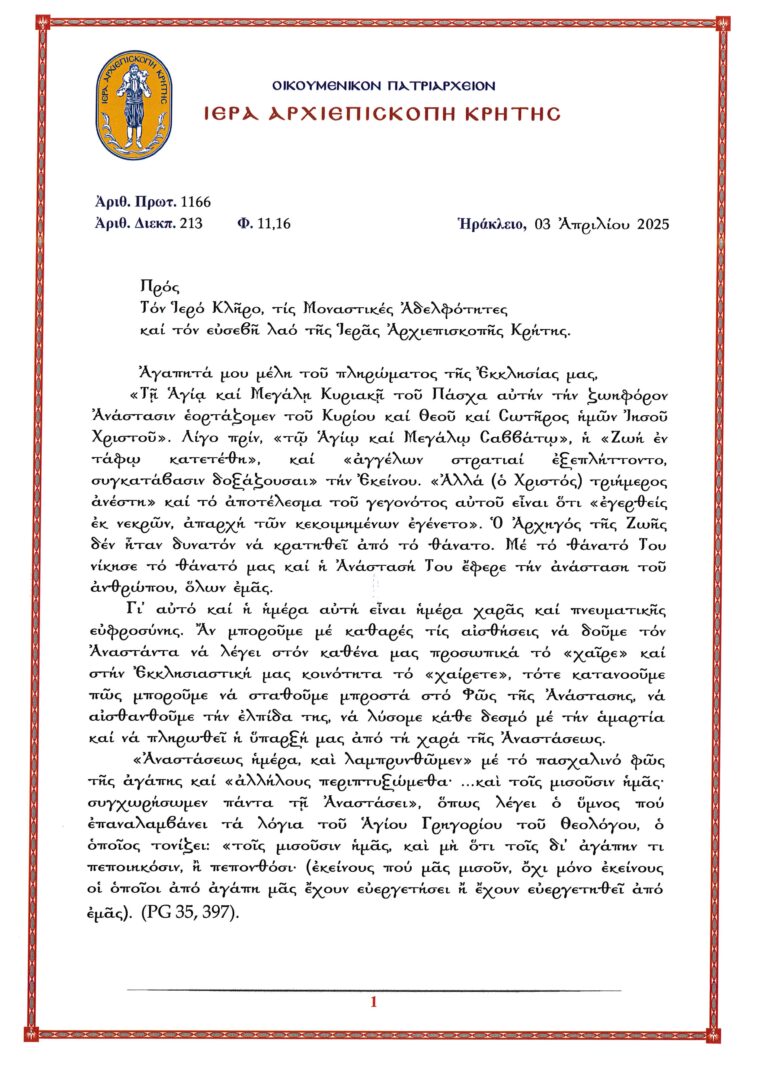 ΙΕΡΑ ΑΡΧΙΕΠΙΣΚΟΠΗ ΚΡΗΤΗΣ
ΟΙΚΟΥΜΕΝΙΚΟΝ ΠΑΤΡΙΑΡΧΕΙΟΝ
ΙΕΡΑ ΑΡΧΙΕΠΙΣΚΟΠΗ ΚΡΗΤΗΣ
Ἀριθ. Πρωτ. 1166
Ἀριθ. Διεκπ. 213 Φ. 11,16 Ἡράκλειο, 03 Ἀπριλίου 2025
Πρός
Τόν Ἱερό Κλῆρο, τίς Μοναστικές Ἀδελφότητες
καί τόν εὐσεβῆ λαό τῆς Ἱερᾶς Ἀρχιεπισκοπῆς Κρήτης.
Ἀγαπητά μου μέλη τοῦ πληρώματος τῆς Ἐκκλησίας μας,
«Τῇ Ἁγίᾳ καί Μεγάλῃ Κυριακῇ τοῦ Πάσχα αὐτήν τήν ζωηφόρον
Ἀνάστασιν ἑορτάζομεν τοῦ Κυρίου καί Θεοῦ καί Σωτῆρος ἡμῶν Ἰησοῦ
Χριστοῦ». Λίγο πρίν, «τῷ Ἁγίῳ καί Μεγάλῳ Σαββάτῳ», ἡ «Ζωή ἐν
τάφῳ κατετέθη», καί «ἀγγέλων στρατιαί ἐξεπλήττοντο,
συγκατάβασιν δοξάζουσαι» τήν Ἐκείνου. «Ἀλλά (ὁ Χριστός) τριήμερος
ἀνέστη» καί τό ἀποτέλεσμα τοῦ γεγονότος αὐτοῦ εἶναι ὅτι «ἐγερθείς
ἐκ νεκρῶν, ἀπαρχή τῶν κεκοιμημένων ἐγένετο». Ὁ Ἀρχηγός τῆς Ζωῆς
δέν ἦταν δυνατόν νά κρατηθεῖ ἀπό τό θάνατο. Μέ τό θάνατό Του
νίκησε τό θάνατό μας καί ἡ Ἀνάστασή Του ἔφερε τήν ἀνάσταση τοῦ
ἀνθρώπου, ὅλων ἐμᾶς.
Γι' αὐτό καί ἡ ἡμέρα αὐτή εἶναι ἡμέρα χαρᾶς καί πνευματικῆς
εὐφροσύνης. Ἄν μποροῦμε μέ καθαρές τίς αἰσθήσεις νά δοῦμε τόν
Ἀναστάντα νά λέγει στόν καθένα μας προσωπικά τό «χαῖρε» καί
στήν Ἐκκλησιαστική μας κοινότητα τό «χαίρετε», τότε κατανοοῦμε
πῶς μποροῦμε νά σταθοῦμε μπροστά στό Φῶς τῆς Ἀνάστασης, νά
αἰσθανθοῦμε τήν ἐλπίδα της, νά λύσομε κάθε δεσμό μέ τήν ἁμαρτία
καί νά πληρωθεῖ ἡ ὕπαρξή μας ἀπό τή χαρά τῆς Ἀναστάσεως.
«Ἀναστάσεως ἡμέρα, καὶ λαμπρυνθῶμεν» μέ τό πασχαλινό φῶς
τῆς ἀγάπης καί «ἀλλήλους περιπτυξώμεθα· ...καὶ τοῖς μισοῦσιν ἡμᾶς·
συγχωρήσωμεν πάντα τῇ Ἀναστάσει», ὅπως λέγει ὁ ὕμνος πού
ἐπαναλαμβάνει τά λόγια τοῦ Ἁγίου Γρηγορίου τοῦ Θεολόγου, ὁ
ὁποῖος τονίζει: «τοῖς μισοῦσιν ἡμᾶς, καὶ μὴ ὅτι τοῖς δι' ἀγάπην τι
πεποιηκόσιν, ἢ πεπονθόσι· (ἐκείνους πού μᾶς μισοῦν, ὄχι μόνο ἐκείνους
οἱ ὁποῖοι ἀπό ἀγάπη μᾶς ἔχουν εὐεργετήσει ἤ ἔχουν εὐεργετηθεῖ ἀπό
ἐμᾶς). (PG 35, 397).
1